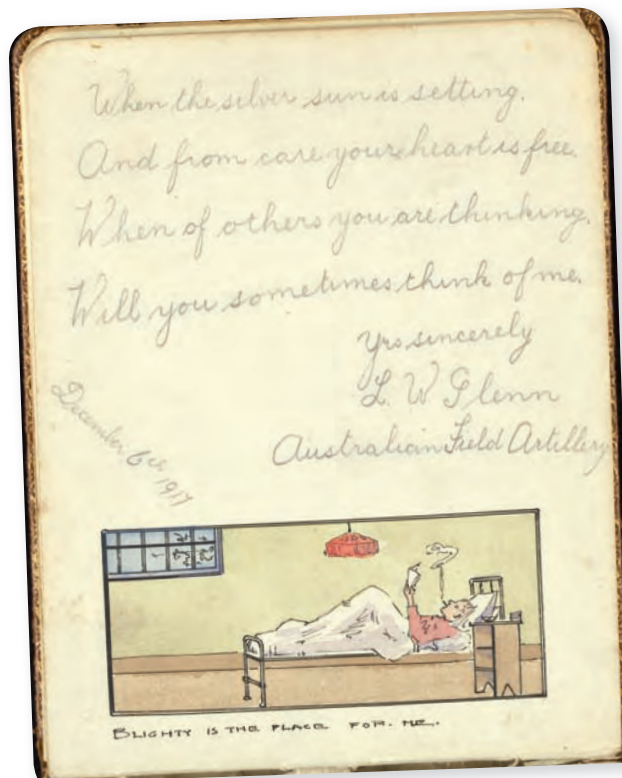 When the silver sun is setting.
And from care your heart is free.
When of others you are thinking.
Will you sometimes think of me.
Yrs sincerely
L. W Glenn
Australian Field Artillery
December 6th 1917
BLIGHTY IS THE PLACE FOR. ME.